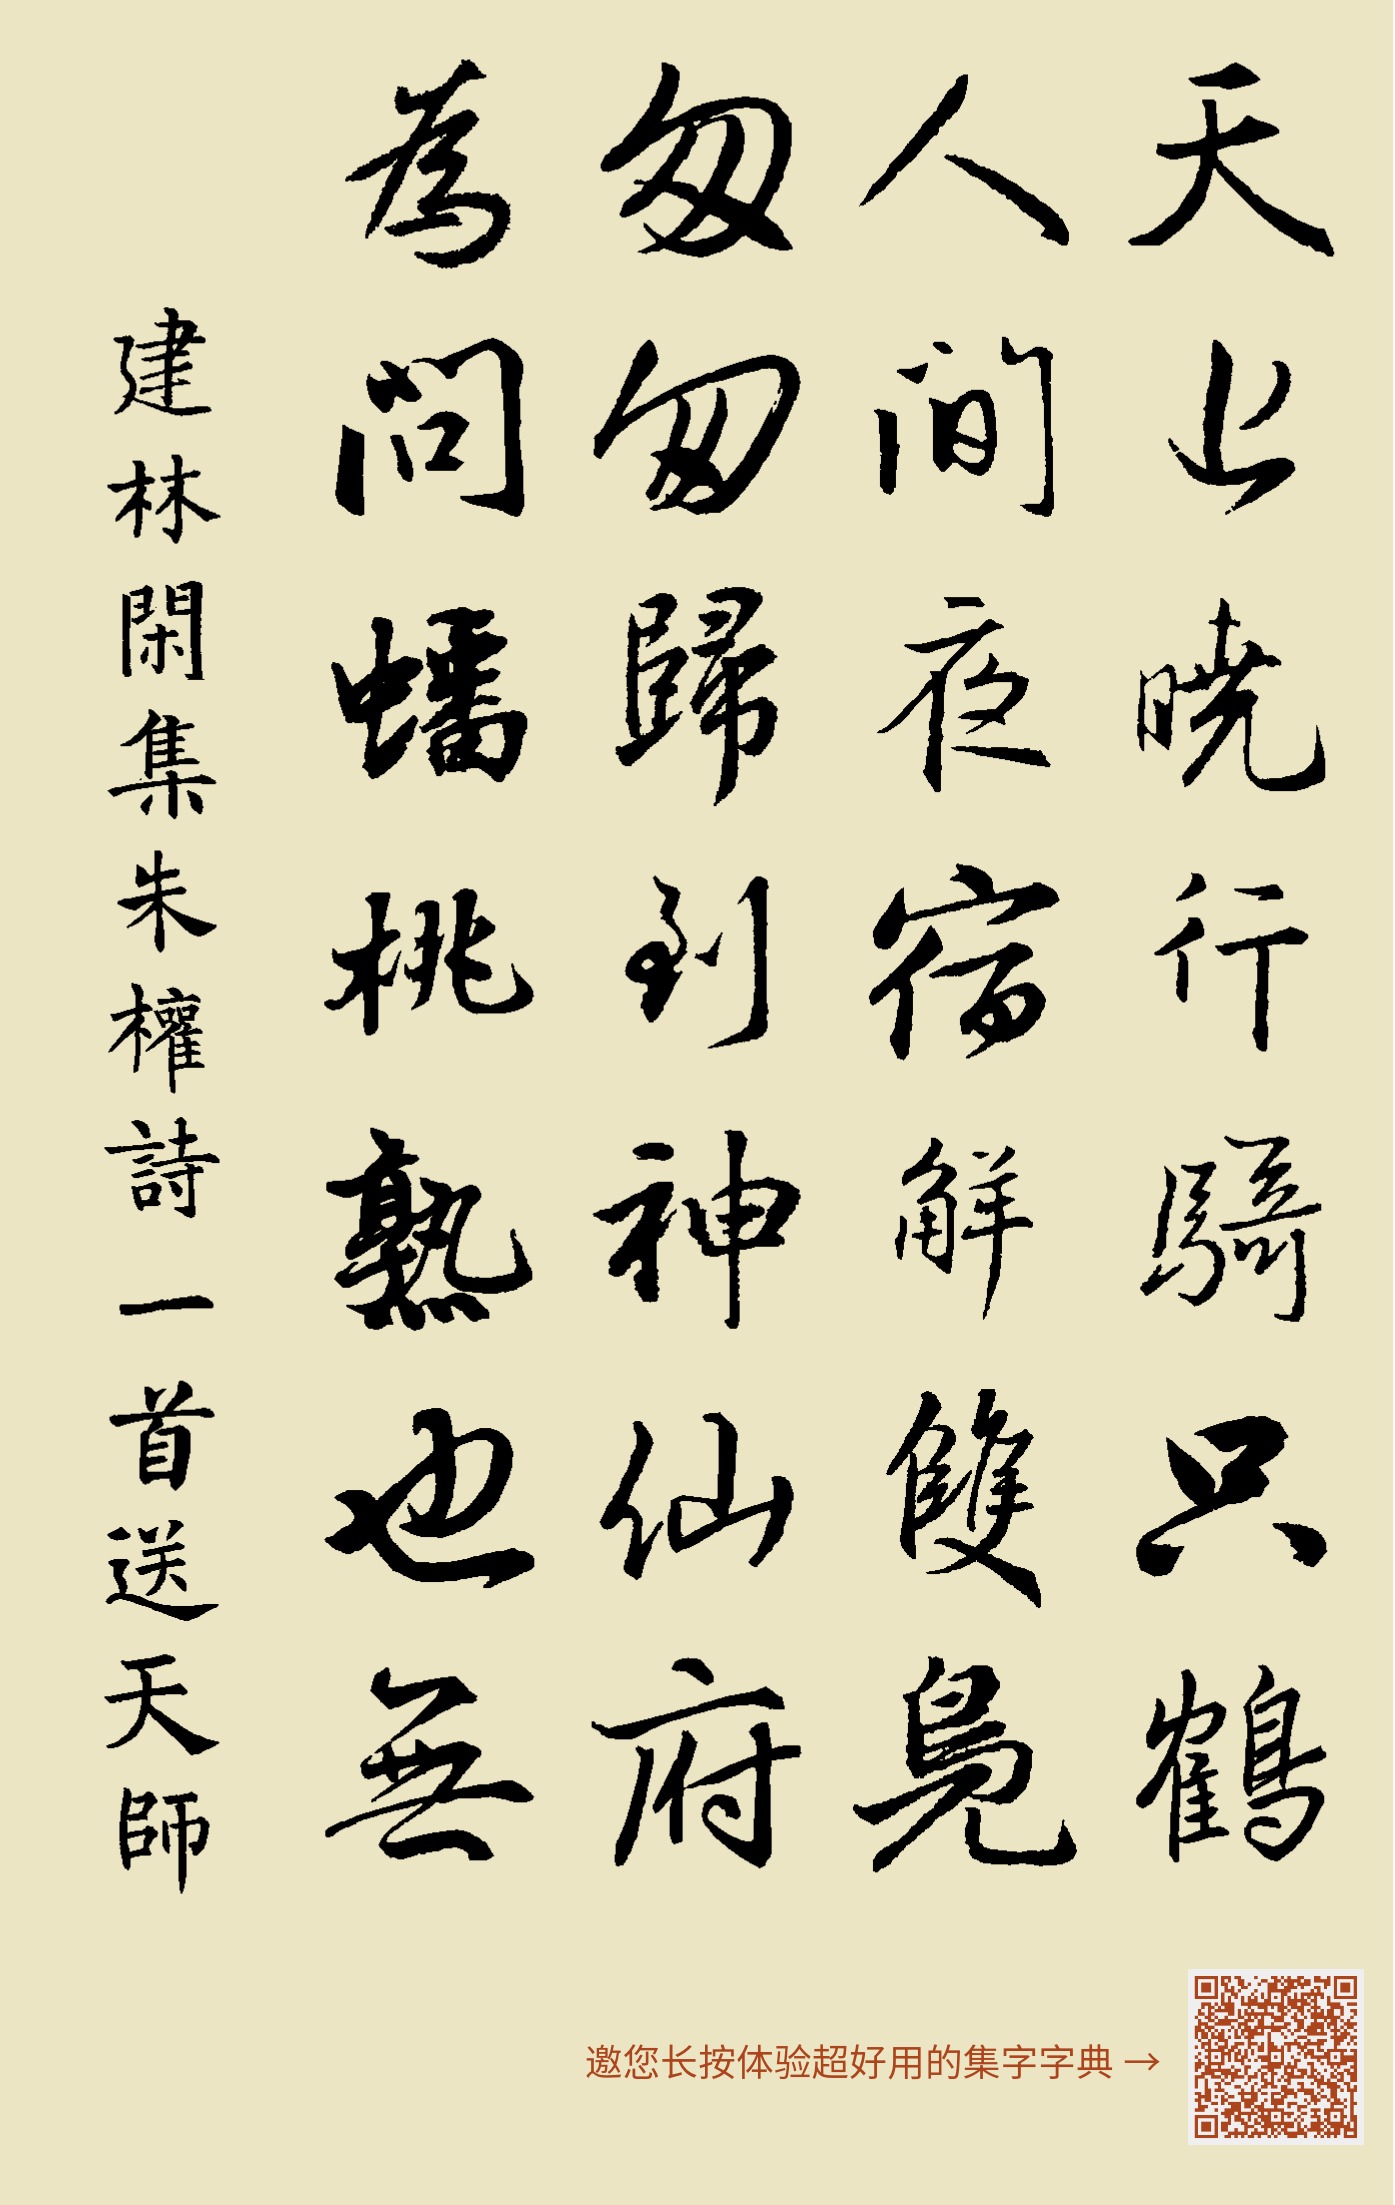 天上曉行騎只鶴
人間夜宿解雙鳧
匆匆歸到神仙府
為問蟠桃熟也無
建林閑集朱權詩一首送天師
邀您长按体验超好用的集字字典→